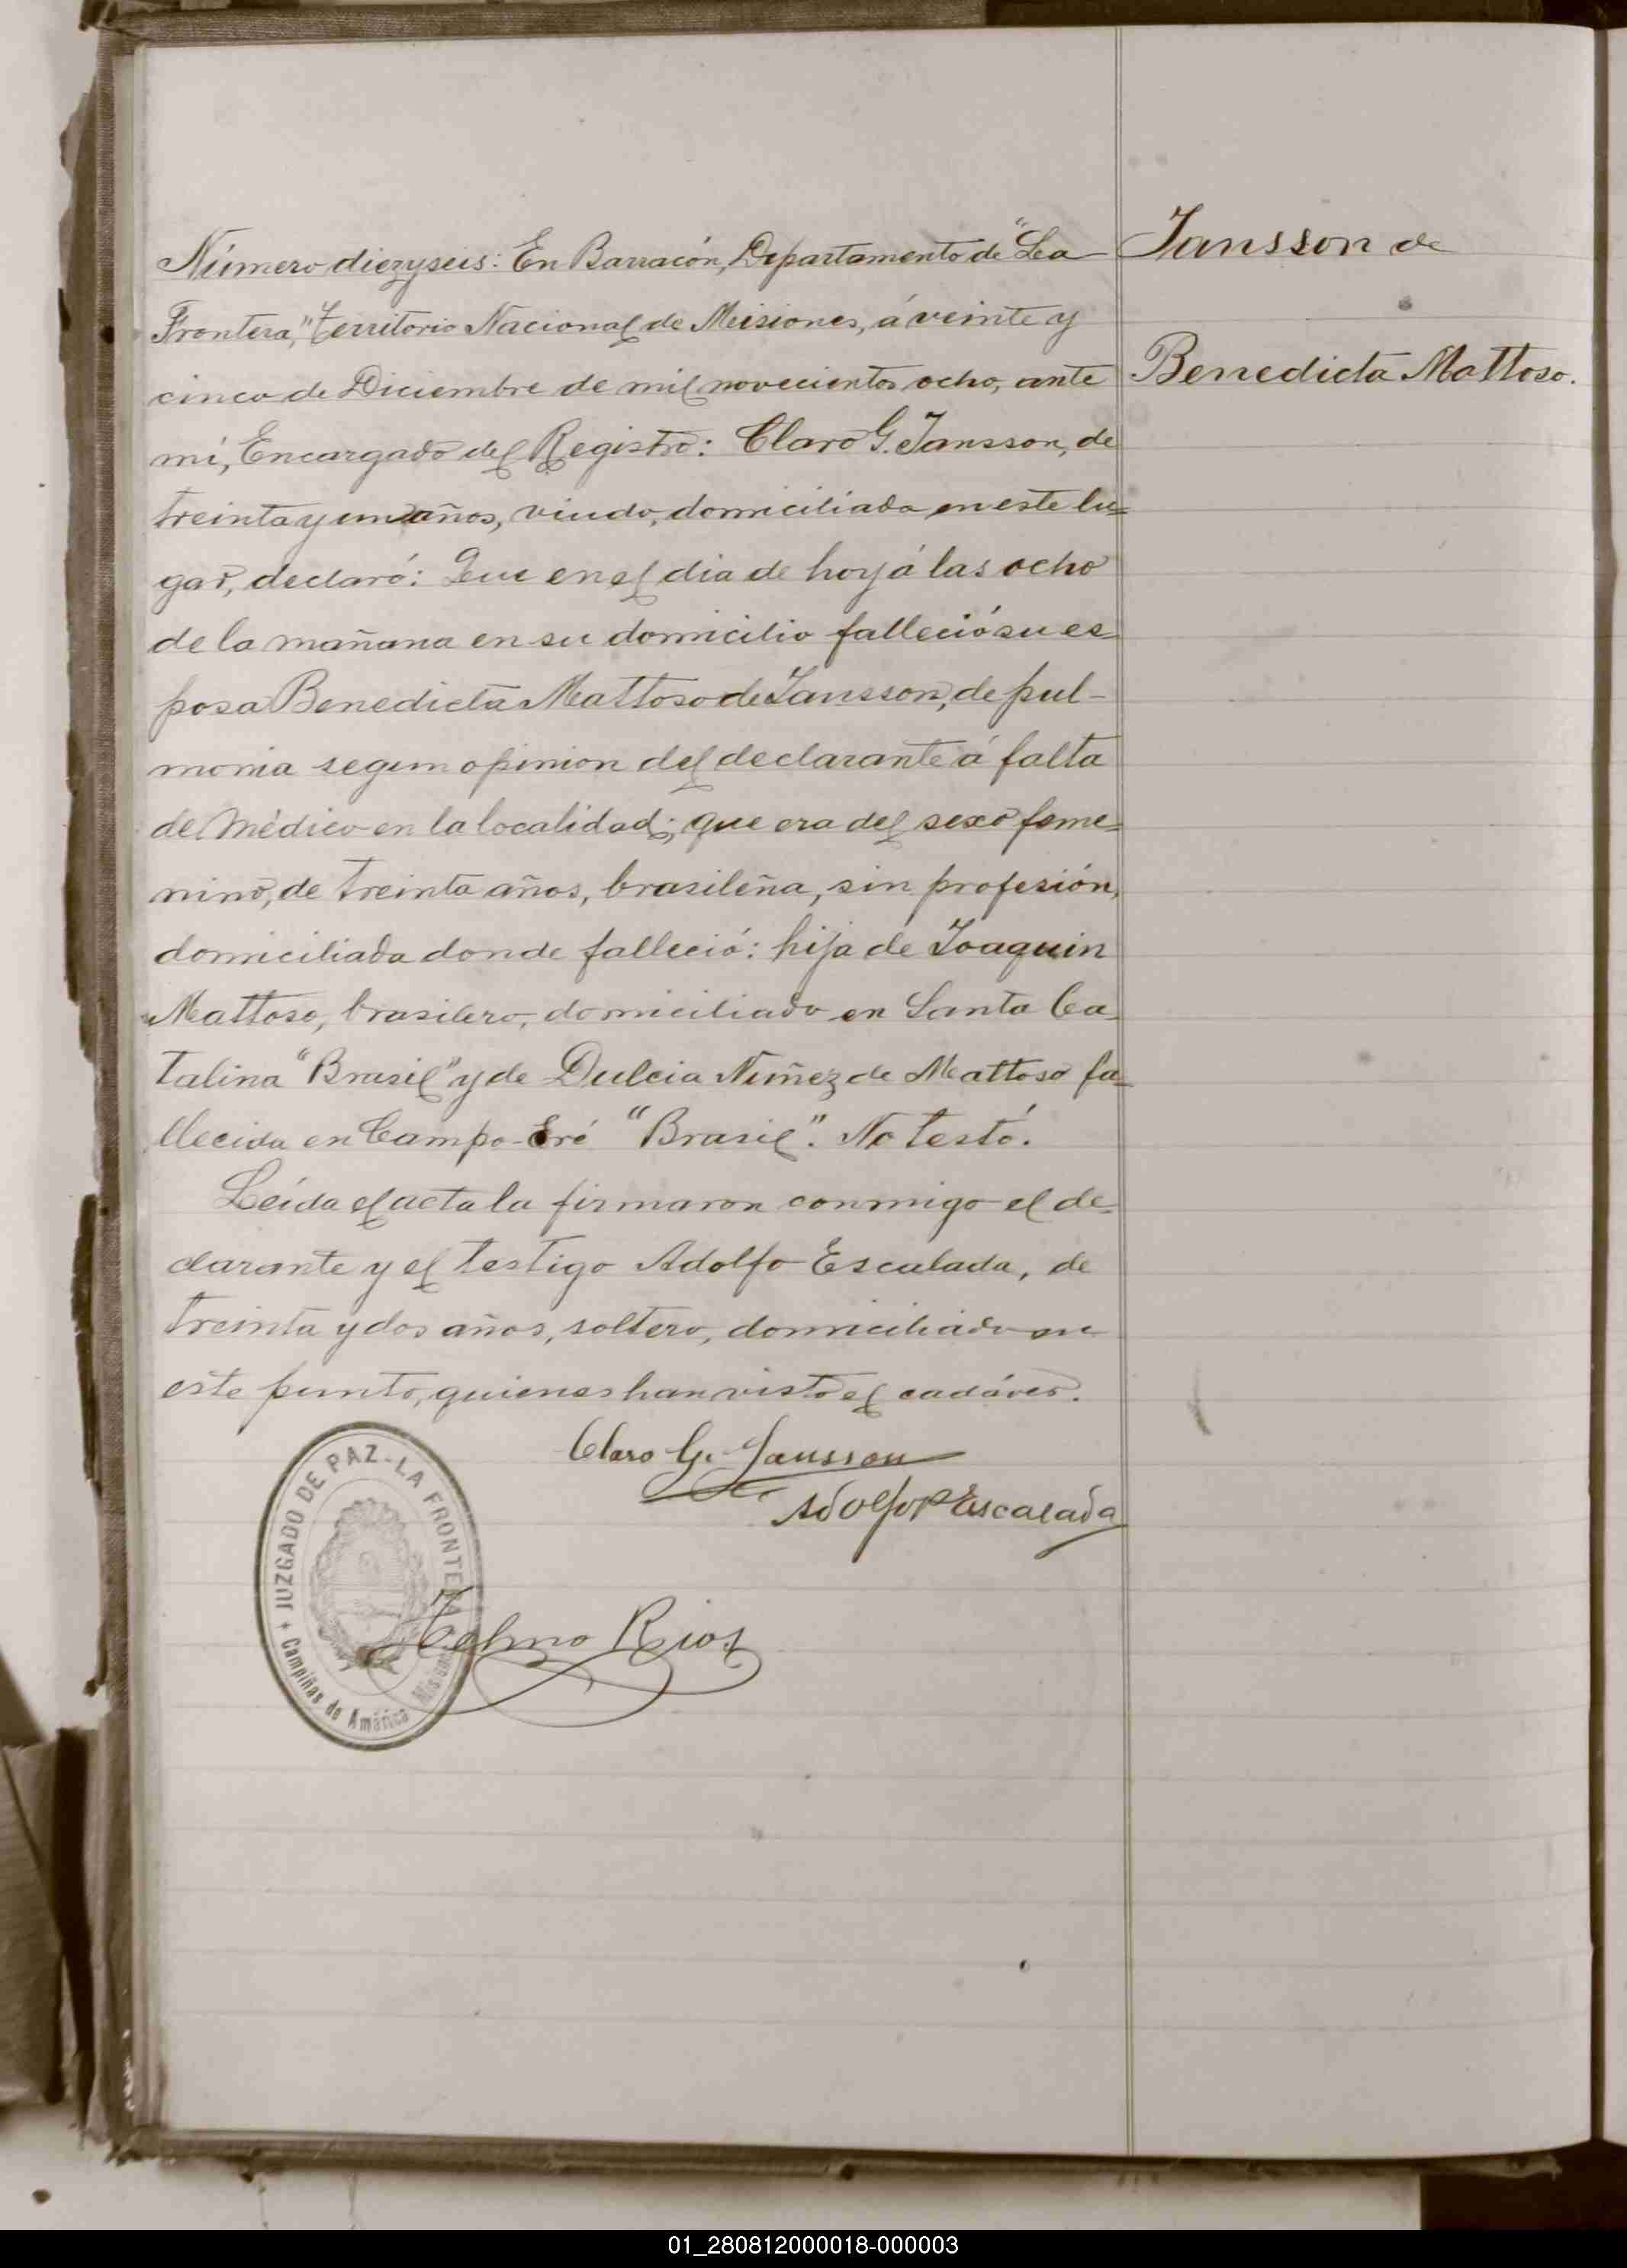 Número diezyseis: En Barracón, Departamento de "La
Frontera," Territorio Nacional de Misiones, á veinte y
cinco de Diciembre de mil novecientos ocho, ante
mí, Encargado del Registro: Claro G. Jansson, de
treinta y un años, viudo, domiciliado en este lu=
gar, declaró: Que en el dia de hoy á las ocho
de la mañana en su domicilio falleció su es-
posa Benedicta Mattoso de Jansson, de pul-
monia segun opinion del declarante á falta
de Médico en la localidad; que era del sexo feme=
nino, de treinta años, brasileña, sin profesión,
domiciliada donde falleció: hija de Joaquin
Mattoso, brasilero, domiciliado en Santa Ca-
talina "Brasil" y de Dulcia Nuñez de Mattoso fa-
llecida en Campo-Eré "Brasil". No testó.
Leída el acta la firmaron conmigo el de=
clarante y el testigo Adolfo Escalada, de
treinta y dos años, soltero, domiciliado en
este punto, quienes han visto el cadáver.
Claro G. Jansson
Adolfo P Escalada
Telmo Rios
JUZGADO DE PAZ - LA FRONTERA
Campiñas de América Misiones
Jansson de
Benedicta Mattoso.
01_280812000018-000003